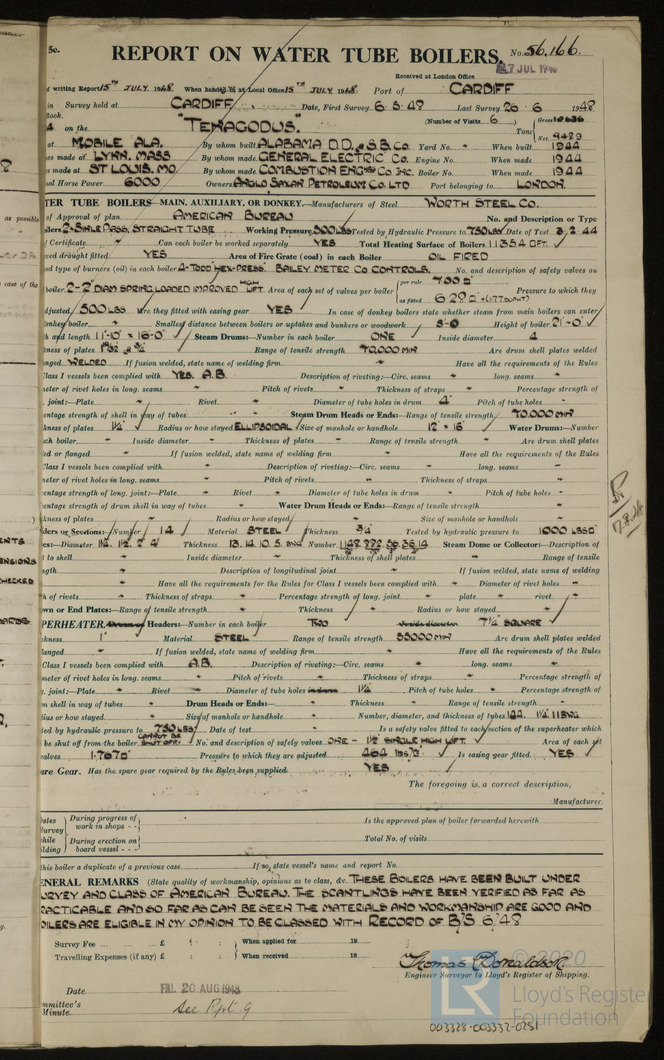 5c.
REPORT ON WATER TUBE BOILERS. No. 56,166.
Received at London Office 27 JUL 1948
of writing Report 15TH JULY 1948. When handed in at Local Office 15TH JULY 1948 Port of CARDIFF
in Survey held at CARDIFF Date, First Survey 6.5.48 Last Survey 26.6 1948
Book. (Number of Visits 6)
on the "TENAGODUS." Tons Gross 10636 Net 9489
at MOBILE ALA. By whom built ALABAMA D.D. & S.B. Co. Yard No. " When built 1944
es made at LYNN. MASS By whom made GENERAL ELECTRIC Co. Engine No. " When made 1944
s made at ST LOUIS. MO By whom made COMBUSTION ENGRG Co INC. Boiler No. " When made 1944
nal Horse Power 6000 Owners ANGLO SAXAN PETROLEUM CO. LTD Port belonging to LONDON.
TER TUBE BOILERS—MAIN, AUXILIARY, OR DONKEY.—Manufacturers of Steel WORTH STEEL CO.
of Approval of plan AMERICAN BUREAU No. and Description or Type
oilers 2-SINLE PASS, STRAIGHT TUBE Working Pressure 500 LBS Tested by Hydraulic Pressure to 750 LBS Date of Test 3.2.44
f Certificate " Can each boiler be worked separately YES Total Heating Surface of Boilers 11354 □FT.
ced draught fitted YES Area of Fire Grate (coal) in each Boiler OIL FIRED
nd type of burners (oil) in each boiler 4-TODD "HEX-PRESS". BAILEY METER CO CONTROLS. No. and description of safety valves on
boiler 2-2" DIAM SPRING LOADED IMPROVED HIGH LIFT Area of each set of valves per boiler per rule as fitted 6.28□" Pressure to which they
adjusted 500 LBS Are they fitted with easing gear YES In case of donkey boilers state whether steam from main boilers can enter
donkey boiler " Smallest distance between boilers or uptakes and bunkers or woodwork 3'-0 Height of boiler 21'-0"
th and length 11'-0" × 16'-0" Steam Drums:—Number in each boiler ONE Inside diameter 4
kness of plates Range of tensile strength 70,000 MIN Are drum shell plates welded
nged WELDED If fusion welded, state name of welding firm Have all the requirements of the Rules
Class I vessels been complied with YES. A.B. Description of riveting:—Circ. seams " long. seams "
meter of rivet holes in long. seams " Pitch of rivets " Thickness of straps " Percentage strength of
joint:—Plate " Rivet " Diameter of tube holes in drum 4" Pitch of tube holes "
entage strength of shell in way of tubes " Steam Drum Heads or Ends:—Range of tensile strength 70,000 MIN
kness of plates 1¼" Radius or how stayed ELLIPSOIDAL Size of manhole or handhole 12" × 16" Water Drums:—Number
ach boiler " Inside diameter " Thickness of plates " Range of tensile strength " Are drum shell plates
ed or flanged " If fusion welded, state name of welding firm " Have all the requirements of the Rules
Class I vessels been complied with " Description of riveting:—Circ. seams " long. seams "
meter of rivet holes in long. seams " Pitch of rivets " Thickness of straps "
entage strength of long. joint:—Plate " Rivet " Diameter of tube holes in drum " Pitch of tube holes "
entage strength of drum shell in way of tubes " Water Drum Heads or Ends:—Range of tensile strength "
kness of plates " Radius or how stayed " Size of manhole or handhole "
ders or Sections:—Number 14 Material STEEL Thickness ¾" Tested by hydraulic pressure to 1000 LBS□"
es:—Diameter Thickness 13. 14. 10. 5 BWG Number Steam Dome or Collector:—Description of
t to shell " Inside diameter " Thickness of shell plates " Range of tensile
ngth " Description of longitudinal joint " If fusion welded, state name of welding
" Have all the requirements for the Rules for Class I vessels been complied with " Diameter of rivet holes "
h of rivets " Thickness of straps " Percentage strength of long. joint " plate " rivet "
wn or End Plates:—Range of tensile strength " Thickness " Radius or how stayed "
PERHEATER. Headers:—Number in each boiler TWO 7¼" SQUARE
kness 1" Material STEEL Range of tensile strength 55000 MIN Are drum shell plates welded
langed " If fusion welded, state name of welding firm " Have all the requirements of the Rules
Class I vessels been complied with A.B. Description of riveting:—Circ. seams " long. seams "
meter of rivet holes in long. seams " Pitch of rivets " Thickness of straps " Percentage strength of
. joint:—Plate " Rivet " Diameter of tube holes in drum 1¼" Pitch of tube holes " Percentage strength of
m shell in way of tubes " Drum Heads or Ends:— Thickness " Range of tensile strength "
dius or how stayed " Size of manhole or handhole " Number, diameter, and thickness of tubes 124. 1¼" 11 BWG
ted by hydraulic pressure to 750 LBS Date of test " Is a safety valve fitted to each section of the superheater which
be shut off from the boiler CANNOT BE SHUT OFF. No. and description of safety valves ONE - 1½" SINGLE HIGH LIFT. Area of each set
valves 1.767□" Pressure to which they are adjusted 464 LBS/□" Is easing gear fitted YES
are Gear. Has the spare gear required by the Rules been supplied YES
The foregoing is a correct description,
Manufacturer.
Dates During progress of work in shops - -
Survey
while During erection on board vessel - - -
lding
Is the approved plan of boiler forwarded herewith
Total No. of visits
this boiler a duplicate of a previous case If so, state vessel's name and report No.
ENERAL REMARKS (State quality of workmanship, opinions as to class, &c. THESE BOILERS HAVE BEEN BUILT UNDER
URVEY AND CLASS OF AMERICAN BUREAU. THE SCANTLINGS HAVE BEEN VERFIED AS FAR AS
RACTICABLE AND SO FAR AS CAN BE SEEN THE MATERIALS AND WORKMANSHIP ARE GOOD AND
OILERS ARE ELIGIBLE IN MY OPINION TO BE CLASSED WITH RECORD OF B.S 6.48
Survey Fee ... ... £ : : When applied for 19
Travelling Expenses (if any) £ : : When received 19
Thomas Donaldson
Engineer Surveyor to Lloyd's Register of Shipping.
Date FRI. 20 AUG 1948
mmittee's Minute. See Rpt. 9
© 2020
LR Lloyd's Register Foundation
003328-003332-0251